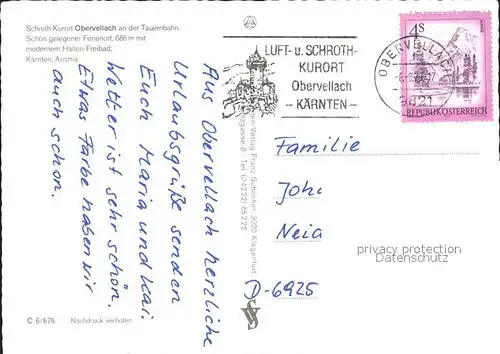 Schroth-Kurort Obervellach an der Tauernbahn.
Schön gelegener Ferienort, 686 m mit
modernem Hallen-Freibad;
Kärnten, Austria
Aus Obervellach herzliche
Urlaubsgrüße senden
Euch Maria und Kai.
Wetter ist sehr schön.
Etwas Farbe haben wir
auch schon.
C 6/676 Nachdruck verboten
Verlag Franz Schilcher, 9020 Klagenfurt,
Tel. (04222) 85225
LUFT- u. SCHROTH-
KURORT
Obervellach
- KÄRNTEN -
OBERVELLACH
9821
4 S
REPUBLIK ÖSTERREICH
Familie
Joh
Neia
D-6925
privacy protection
Datenschutz